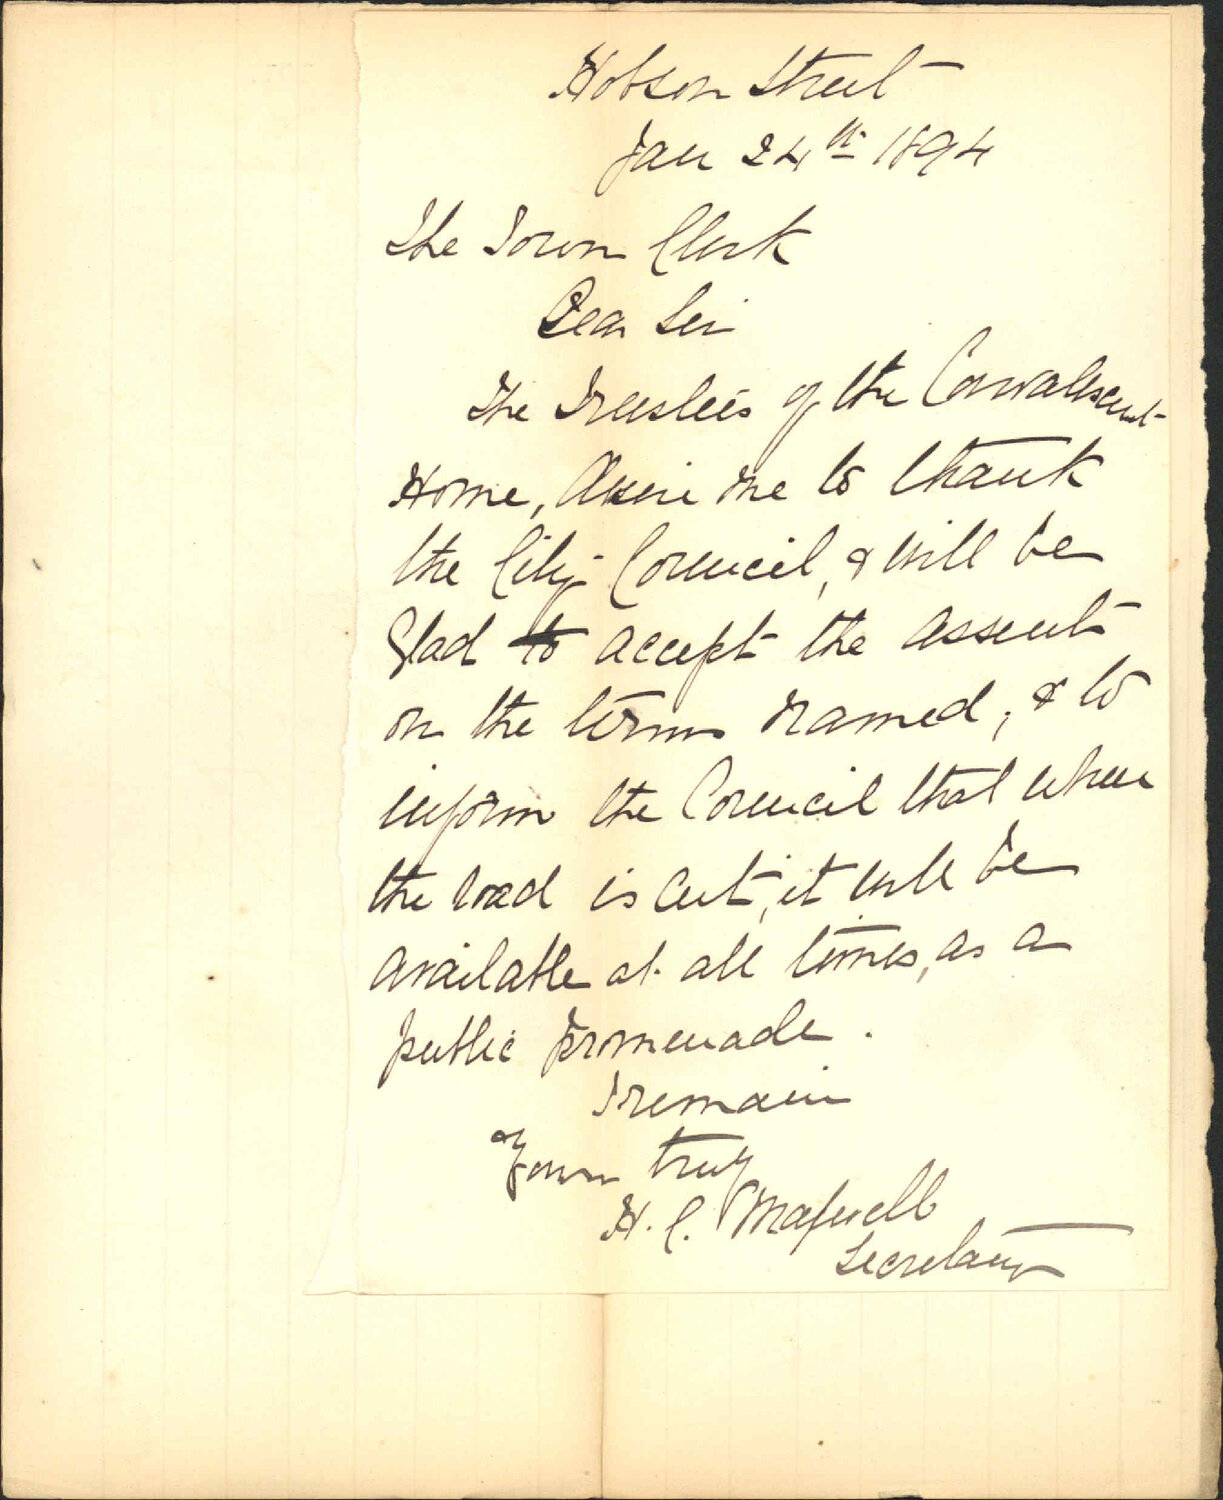 Hobson Street
Jan 24th 1894
The Town Clerk
Dear Sir
The Trustees of the Convalescent
Home, desire me to thank
the City Council, & will be
Glad to accept the assent
on the terms named, & to
inform the Council that when
the road is cut, it will be
available at all times, as a
public promenade.
I remain
Yours truly
H. C. Maxwell
Secretary